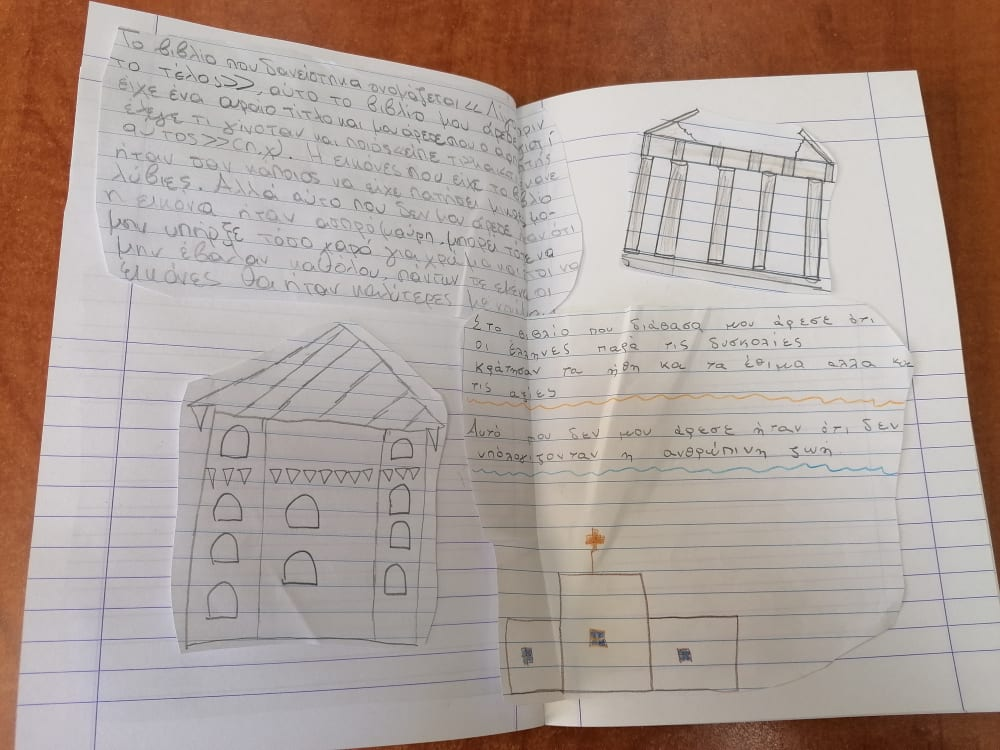 Το βιβλίο που δανείστηκα ονομάζεται << Λίγο πριν
το τέλος>>, αυτό το βιβλίο μου άρεσε γιατί
είχε ένα ωραίο τίτλο και μου άρεσε που ο
έλεγε τι γίνοταν και ποιός είπε τι
αυτός>>(π.χ). Η εικόνες που είχε το βιβλίο
ήταν σαν κάποιος να είχε πατήσει με μο-
λύβιες. Αλλά αυτό που δεν μου άρεσε ήταν ότι
η εικόνα ήταν ασπρόμαυρη, μπορεί τότε να
μην υπηρξε τόσο χαρό για χρώμα και έτσι να
μην έβαζαν καθόλου, πάντων σε εμένα οι
εικόνες θα ήταν καλύτερες με
Στο βιβλίο που διάβασα μου άρεσε ότι
οι έλληνες παρά τις δυσκολίες
κράτησαν τα ήθη και τα έθιμα αλλα και
τις αξίες
Αυτό που δεν μου άρεσε ήταν ότι δεν
υπολογιζόνταν η ανθρώπινη ζωή.